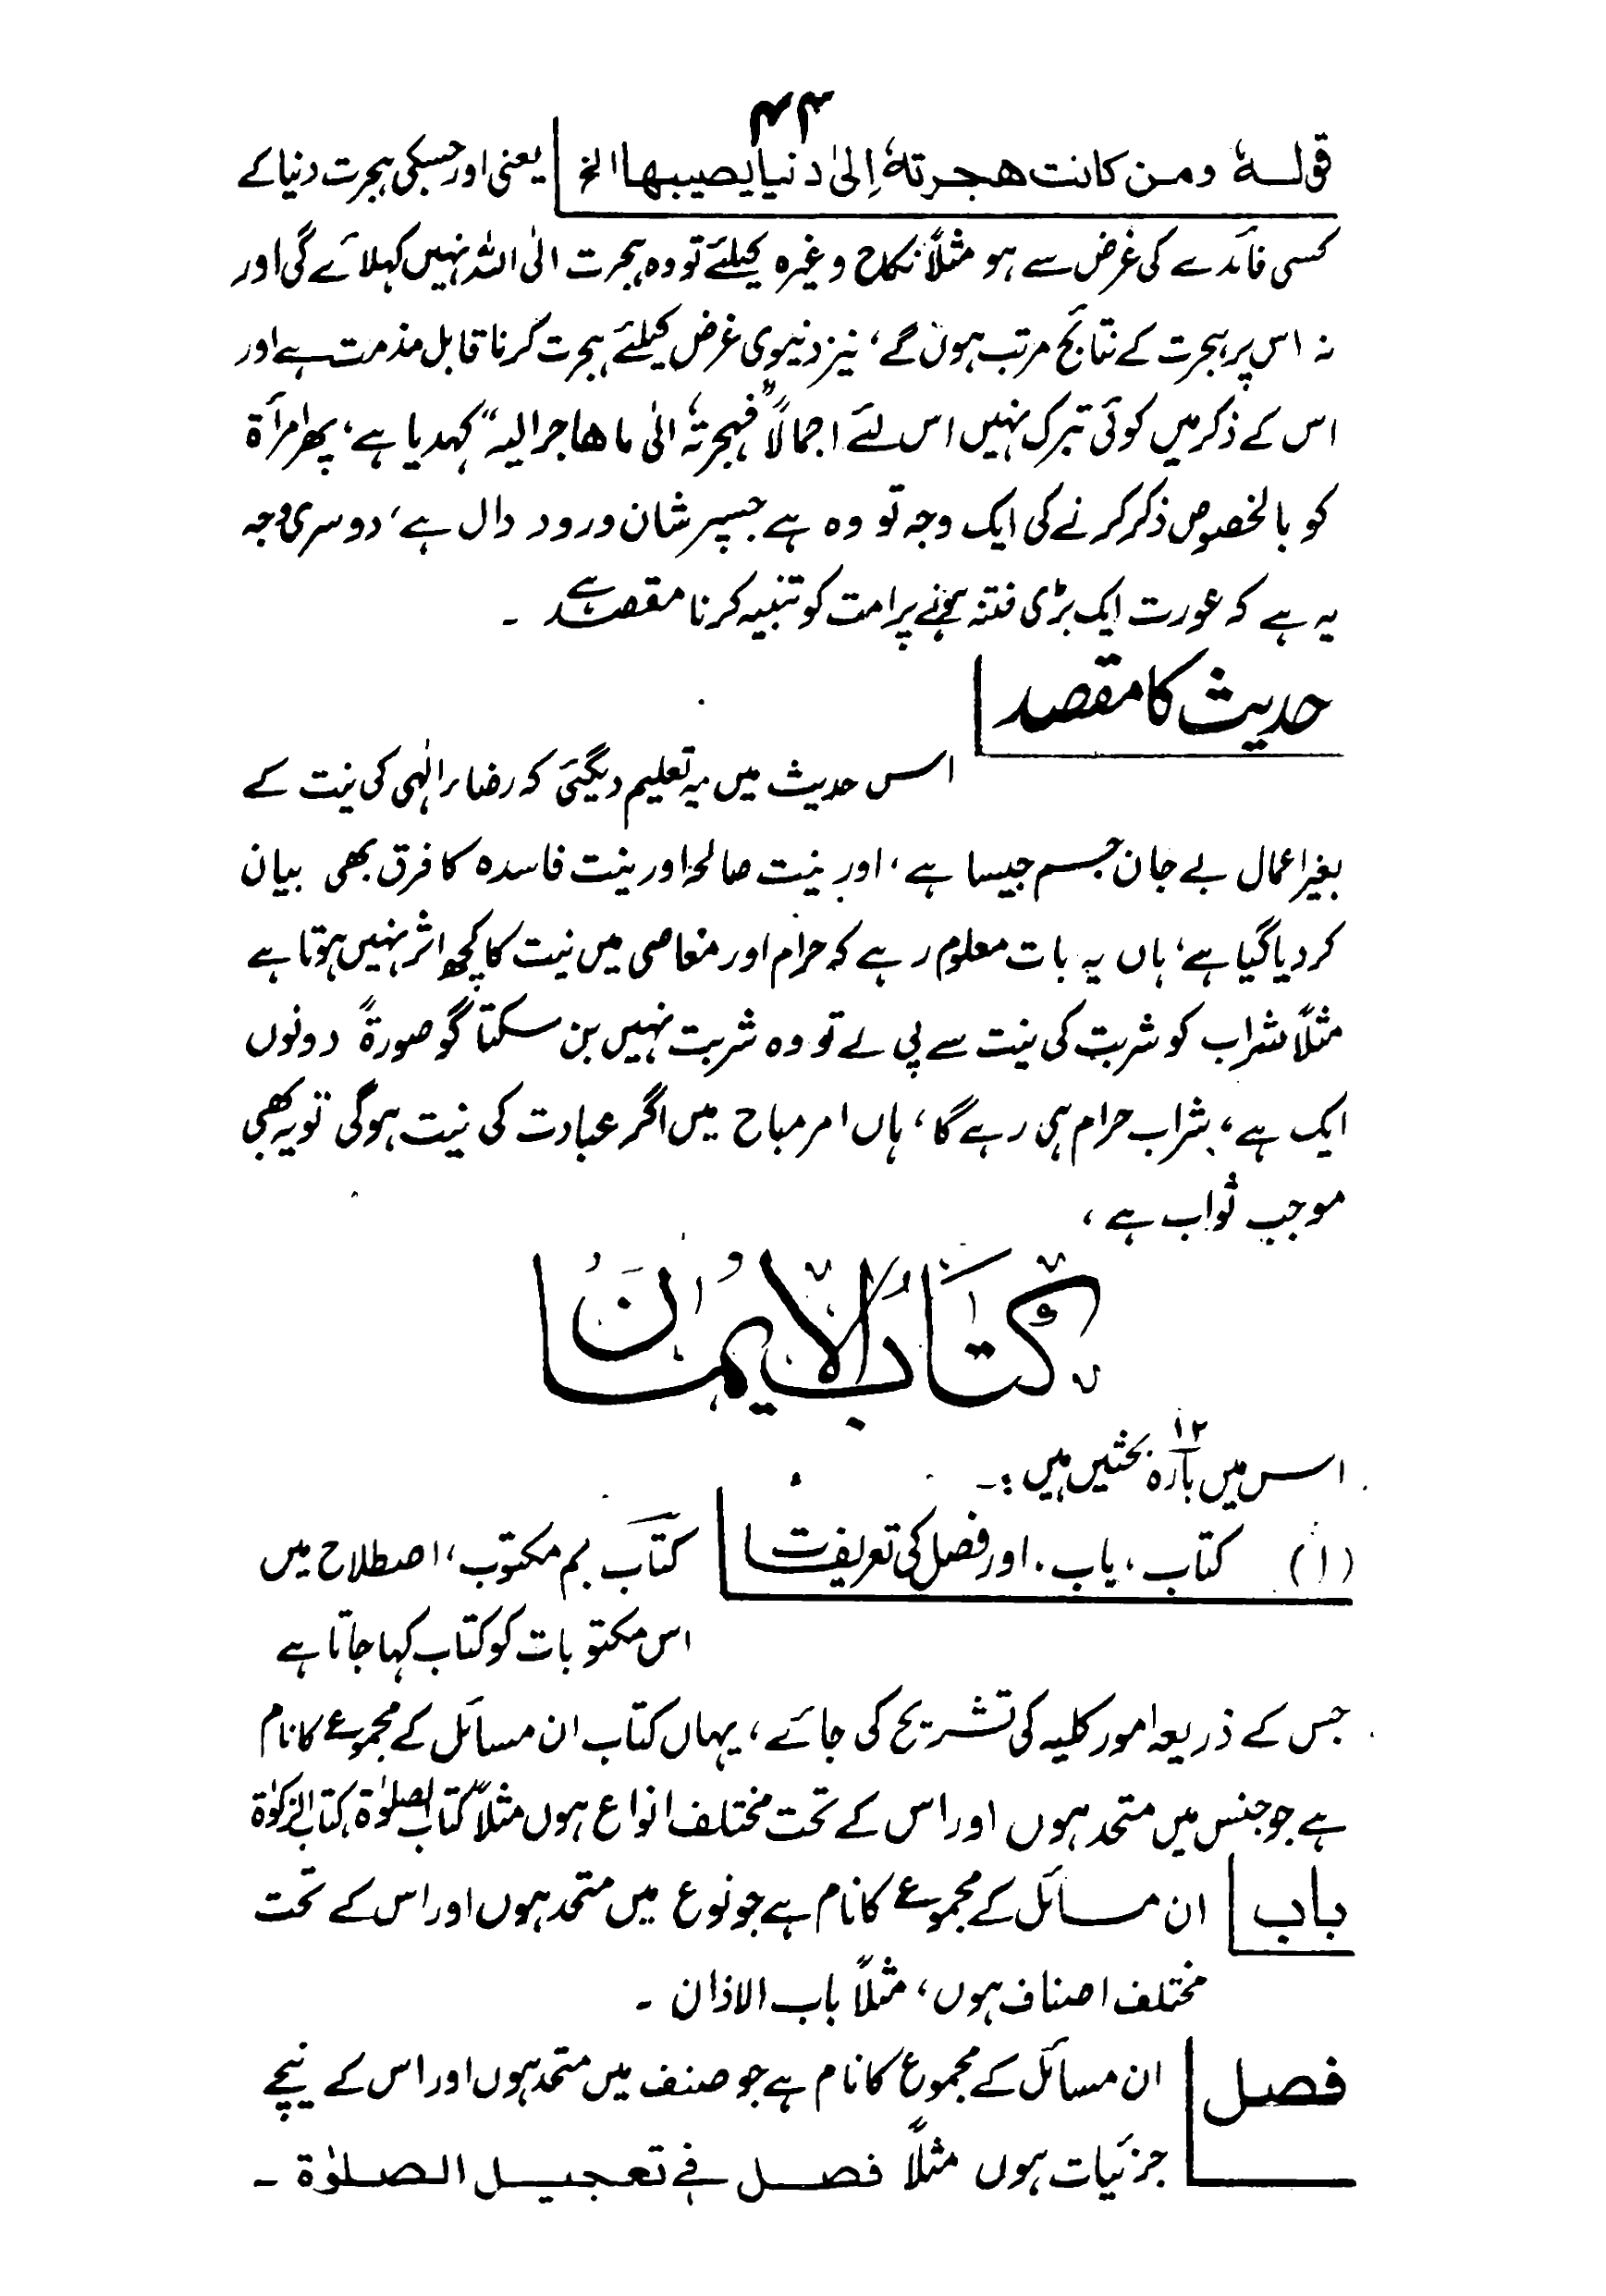 ۴۴
قولهٗ ومن كانت هجرتهٗ اِلىٰ دنيا يصيبها الخ یعنی اور جسکی ہجرت دنیا کے
کسی فائدے کی غرض سے ہو مثلاً نکاح وغیرہ کیلئے تو وہ ہجرت الی اللہ نہیں کہلائے گی اور
نہ اس پر ہجرت کے نتائج مرتب ہوں گے، نیز دنیوی غرض کیلئے ہجرت کرنا قابل مذمت ہے اور
اس کے ذکر میں کوئی تبرک نہیں اس لئے اجمالاً "فہجرتہٗ الیٰ ما ھاجر الیہ" کہدیا ہے، پھر امرأۃ
کو بالخصوص ذکر کرنے کی ایک وجہ تو وہ ہے جسپر شان ورود دال ہے، دوسری وجہ
یہ ہے کہ عورت ایک بڑی فتنہ ہونے پر امت کو تنبیہ کرنا مقصد ہے ۔
حدیث کا مقصد
اس حدیث میں یہ تعلیم دیگئی کہ رضاء الٰہی کی نیت کے
بغیر اعمال بے جان جسم جیسا ہے، اور نیت صالحہ اور نیت فاسدہ کا فرق بھی بیان
کر دیا گیا ہے، ہاں یہ بات معلوم رہے کہ حرام اور معاصی میں نیت کا کچھ اثر نہیں ہوتا ہے
مثلاً شراب کو شربت کی نیت سے پی لے تو وہ شربت نہیں بن سکتا گو صورۃً دونوں
ایک ہے، شراب حرام ہی رہے گا، ہاں امر مباح میں اگر عبادت کی نیت ہوگی تو یہ بھی
موجب ثواب ہے ،
كِتَابُ الْاِيْمَانِ
اس میں بارہ ۱۲ بحثیں ہیں :۔
(۱) کتاب ، باب ، اور فصل کی تعریفات کتاب بم مکتوب، اصطلاح میں
اس مکتوبات کو کتاب کہا جاتا ہے
جس کے ذریعہ امور کلیہ کی تشریح کی جائے، یہاں کتاب ان مسائل کے مجموعے کا نام
ہے جو جنس میں متحد ہوں اور اس کے تحت مختلف انواع ہوں مثلاً کتاب الصلوٰۃ، کتاب الزکوٰۃ
باب ان مسائل کے مجموعے کا نام ہے جو نوع میں متحد ہوں اور اس کے تحت
مختلف اصناف ہوں، مثلاً باب الاذان ۔
فصل ان مسائل کے مجموع کا نام ہے جو صنف میں متحد ہوں اور اس کے نیچے
جزئیات ہوں مثلاً فصل فی تعجیل الصلوٰۃ ۔